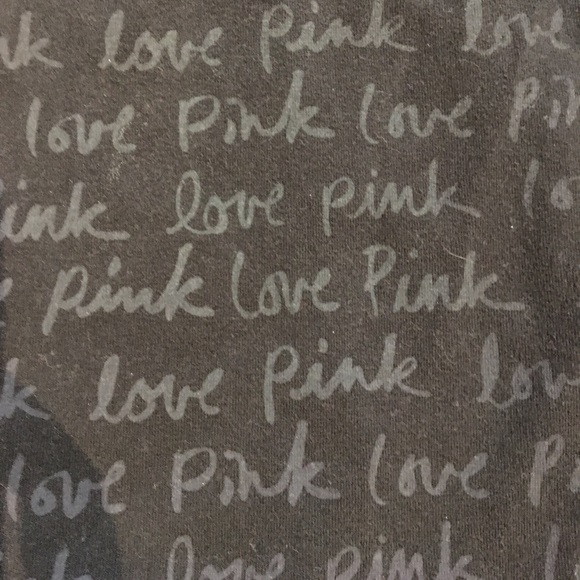 nk love Pink love
love Pink love Pin
ink love pink lo
pink love Pink
k love Pink lov
love Pink love P
love pink l